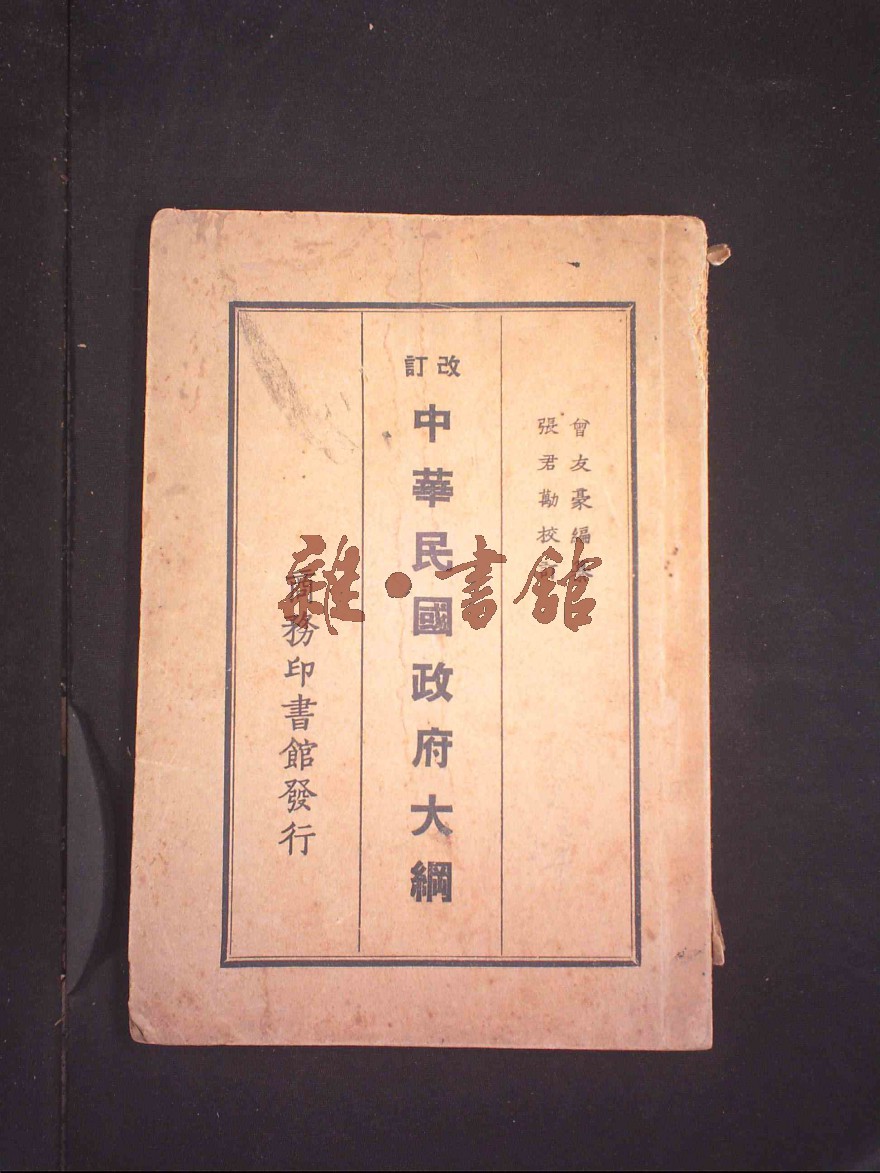 曾友豪編
張君勱校
改訂
中華民國政府大綱
商務印書館發行
雜·書館